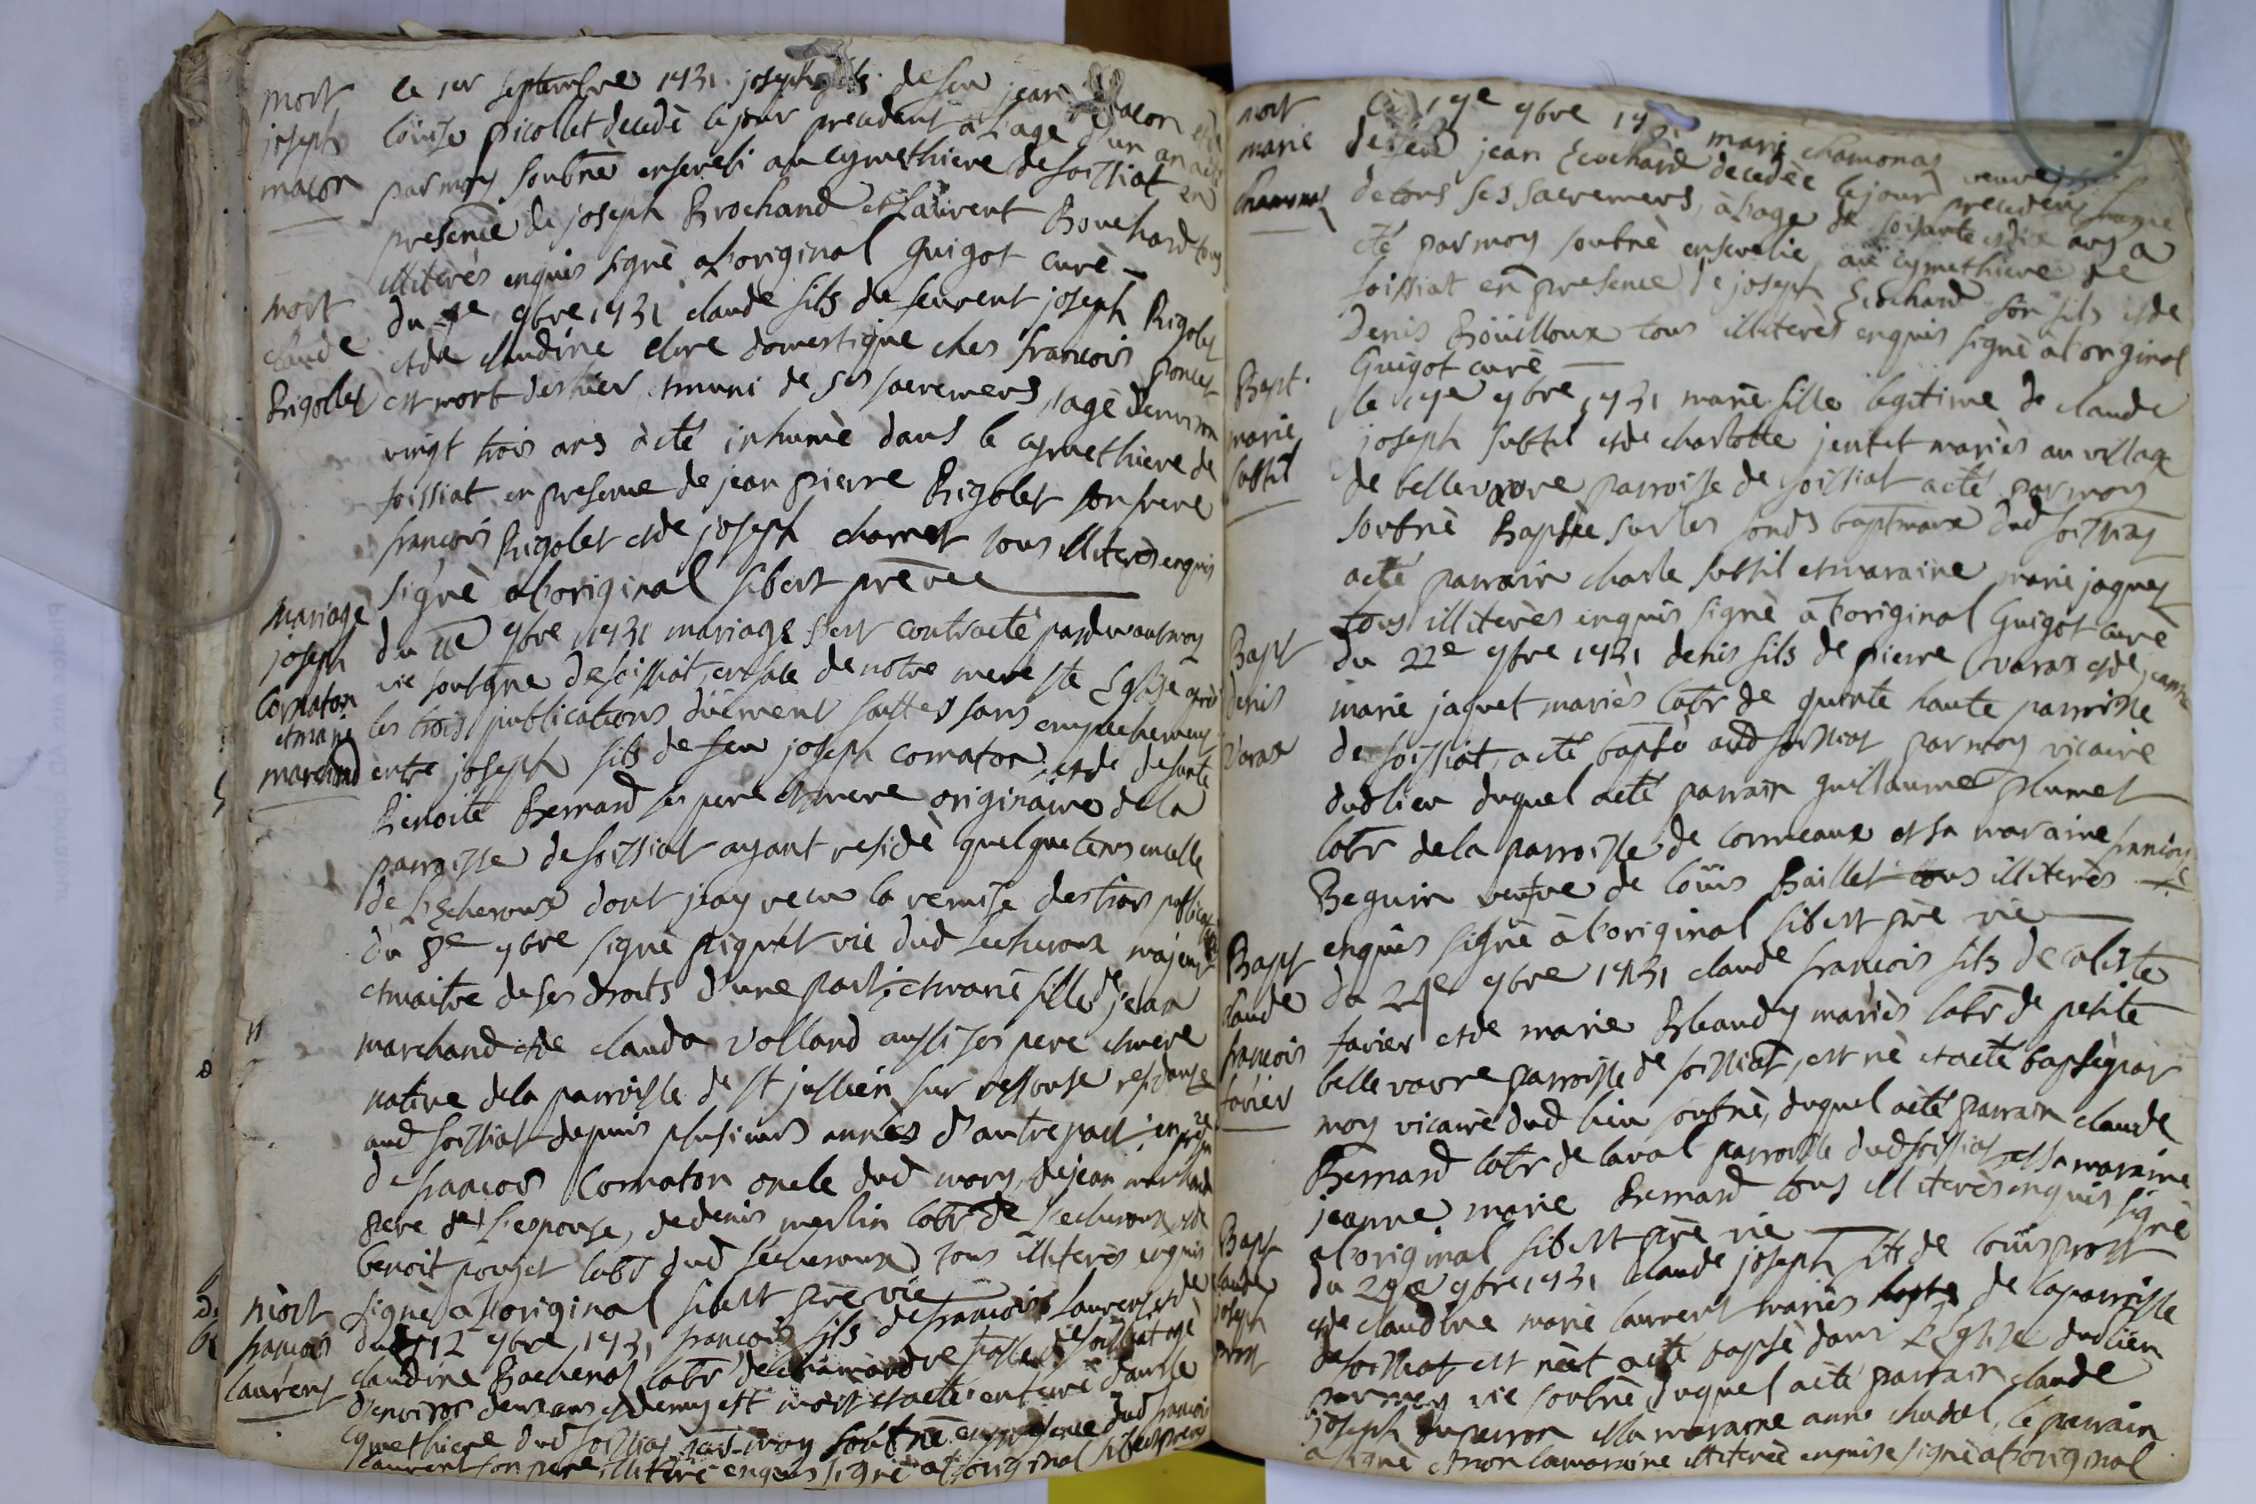 mort
joseph
macon
le 1er septembre 1731 joseph fils de feu jean macon et de
loüise picollet decedè le jour precedent à l'age d'un an a etè
par moy soubnè enseveli au cymethiere de soissiat en
presence de joseph Brochand et Laurent Bouchard tous
illiterès enquis signè a l'original Guigot curè
mort
claude
Rigollet
du 9bre 1731 claude fils de feurent joseph Rigolet
et de claudine clere domestique ches francois poncet
est mort des hier et muni de ses sacremens, agè d'environ
vingt trois ans a eté inhumè dans le cymethiere de
soissiat en presence de jean pierre Rigolet son frere
francois Rigolet et de joseph charret tous illiterès enquis
signè a l'original sibert prê vic
mariage
joseph
Cornaton
et marie
marchand
du 11e 9bre 1731 mariage s'est contractè pardevant moy
vic soutgne de soissiat, en face de notre mere ste Eglise après
les trois publications düement faittes sans empechement
entre joseph fils de feu joseph cornaton et de defunte
Benoite Bernard ses pere et mere originaire de la
parroisse de soissiat ayant residè quelque tems en celle
de Lescheroux dont j'ay recu la remise des trois publica
du 8e 9bre signè piquet vic dud Lecheroux majeur
et maitre de ses droits d'une part; et marie fille de jean
marchand et de clauda Volland aussi ses pere et mere
native de la parroisse de st jullien sur ressouse residante
aud soissiat depuis plusieurs annèes d'autre part, en presen
de francois Cornaton oncle dud mary, de jean marchand
pere de l'epouse, de denis merlin labr de Lecheroux et de
benoit pouzet labr dud Lecheroux tous illiterès enquis
signè a l'original sibert prè vic
mort
francois
laurent
du 12 9bre 1731 francois fils de francois Laurent et de
claudine Bochenot labr de parroisse de soissiat agè
d'environ deux ans et demy est mort et a eté enterrè dans le
cymethiere dud soissiat par moy soubnè en presence dud francois
laurent son pere illiterè enquis signè a l'original sibert prê vic
mort
marie
chamonay
le 19e 9bre 17 marie chamonay veuve
de feu jean Ecochard decedèe le jour precedent munie
de tous ses sacremens, à l'age de soixante et dix ans a
eté par moy soubnè ensevelie au cymethiere de
soissiat en presence de joseph Ecochard son fils et de
Denis Boüilloux tous illiterès enquis signè à l'original
Guigot curè
Bapt.
marie
suttil
le 19e 9bre 1731 marie fille legitime de claude
joseph suttil et de charlotte jentet mariès au village
de bellevavre parroisse de soissiat a etè par moy
soubnè Baptsèe sur les fonds baptmaux dud soissiat
a etè parrain charle suttil et maraine marie jaquet
tous illiterès enquis signè à l'original Guigot curè
Bapt
denis
Varax
du 22e 9bre 1731 denis fils de pierre varax et de jeanne
marie jaquet mariès labr de quinte haute parroisse
de soissiat, a etè baptsè aud soissiat par moy vicaire
dudlieu duquel a etè parrain guillaume plumet
labr de la parroisse de cormeaux et sa maraine francoise
Beguin veufve de loüis Baillet tous illiterès
enquis signè à l'original sibert prè vic
Bapt
claude
francois
favier
du 24e 9bre 1731 claude francois fils de caliste
favier et de marie Bleandy mariès labr de petite
bellevavre parroisse de soissiat, est nè et a etè baptsè par
moy vicaire dud lieu soubnè, duquel a etè parrain claude
Bernard labr de laval parroisse dud soissiat et sa maraine
jeanne marie Bernard tous illiterès enquis signè
a l'original sibert prè vic
Bapt
claude
joseph
prost
du 29e 9bre 1731 claude joseph fils de loüis prost
et de claudine marie laurent mariès de la parroisse
de soissiat est nè et a etè baptsè dans l'Eglise dud lien
par moy vic soubnè, duquel a etè parrain claude
joseph duperron et la maraine anne chudal, le parrain
a signè et non la maraine illiterèe enquise signè a l'original